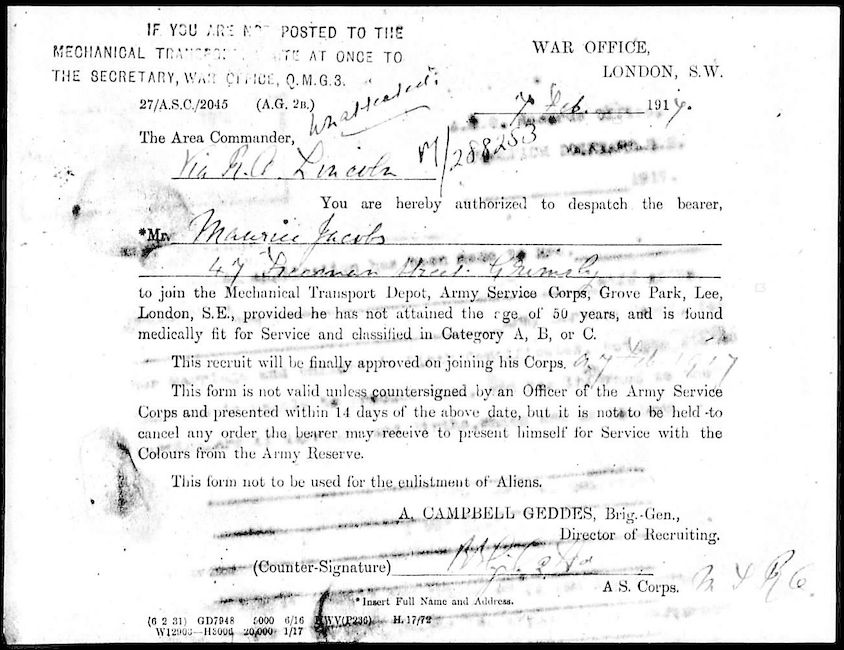 IF YOU ARE NOT POSTED TO THE
MECHANICAL TRANSPORT, WRITE AT ONCE TO
THE SECRETARY, WAR OFFICE, Q.M.G.3.
WAR OFFICE,
LONDON, S.W.
27/A.S.C./2045 (A.G. 2B.)
7 Feb. 1917.
The Area Commander,
Via R.O. Lincoln M/288253
You are hereby authorized to despatch the bearer,
*Mr. Maurice Jacobs
47 Freeman Street Grimsby
to join the Mechanical Transport Depot, Army Service Corps, Grove Park, Lee,
London, S.E., provided he has not attained the age of 50 years, and is found
medically fit for Service and classified in Category A, B, or C.
This recruit will be finally approved on joining his Corps.
This form is not valid unless countersigned by an Officer of the Army Service
Corps and presented within 14 days of the above date, but it is not to be held to
cancel any order the bearer may receive to present himself for Service with the
Colours from the Army Reserve.
This form not to be used for the enlistment of Aliens.
A. CAMPBELL GEDDES, Brig.-Gen.,
Director of Recruiting.
(Counter-Signature)
A S. Corps.
*Insert Full Name and Address.
(6 2 31) GD7948 5000 6/16 HWV(P236) H. 17/72
W12903—H3006 20,000 1/17